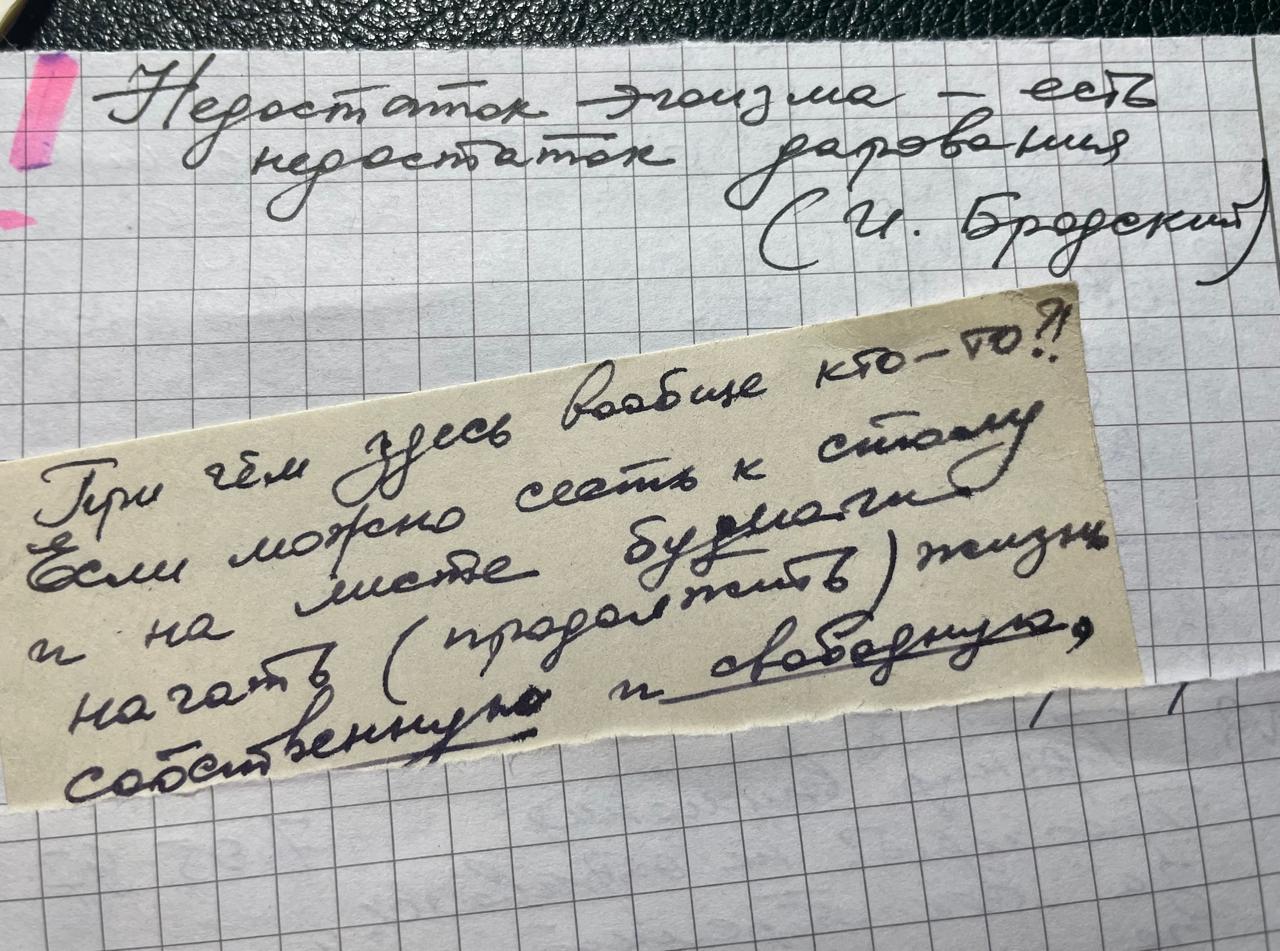 Недостаток эгоизма – есть
недостаток дарования
(И. Бродский)
При чём здесь вообще кто-то?!
Если можно сесть к столу
и на листе бумаги
начать (продолжить) жизнь
собственную и свободную,